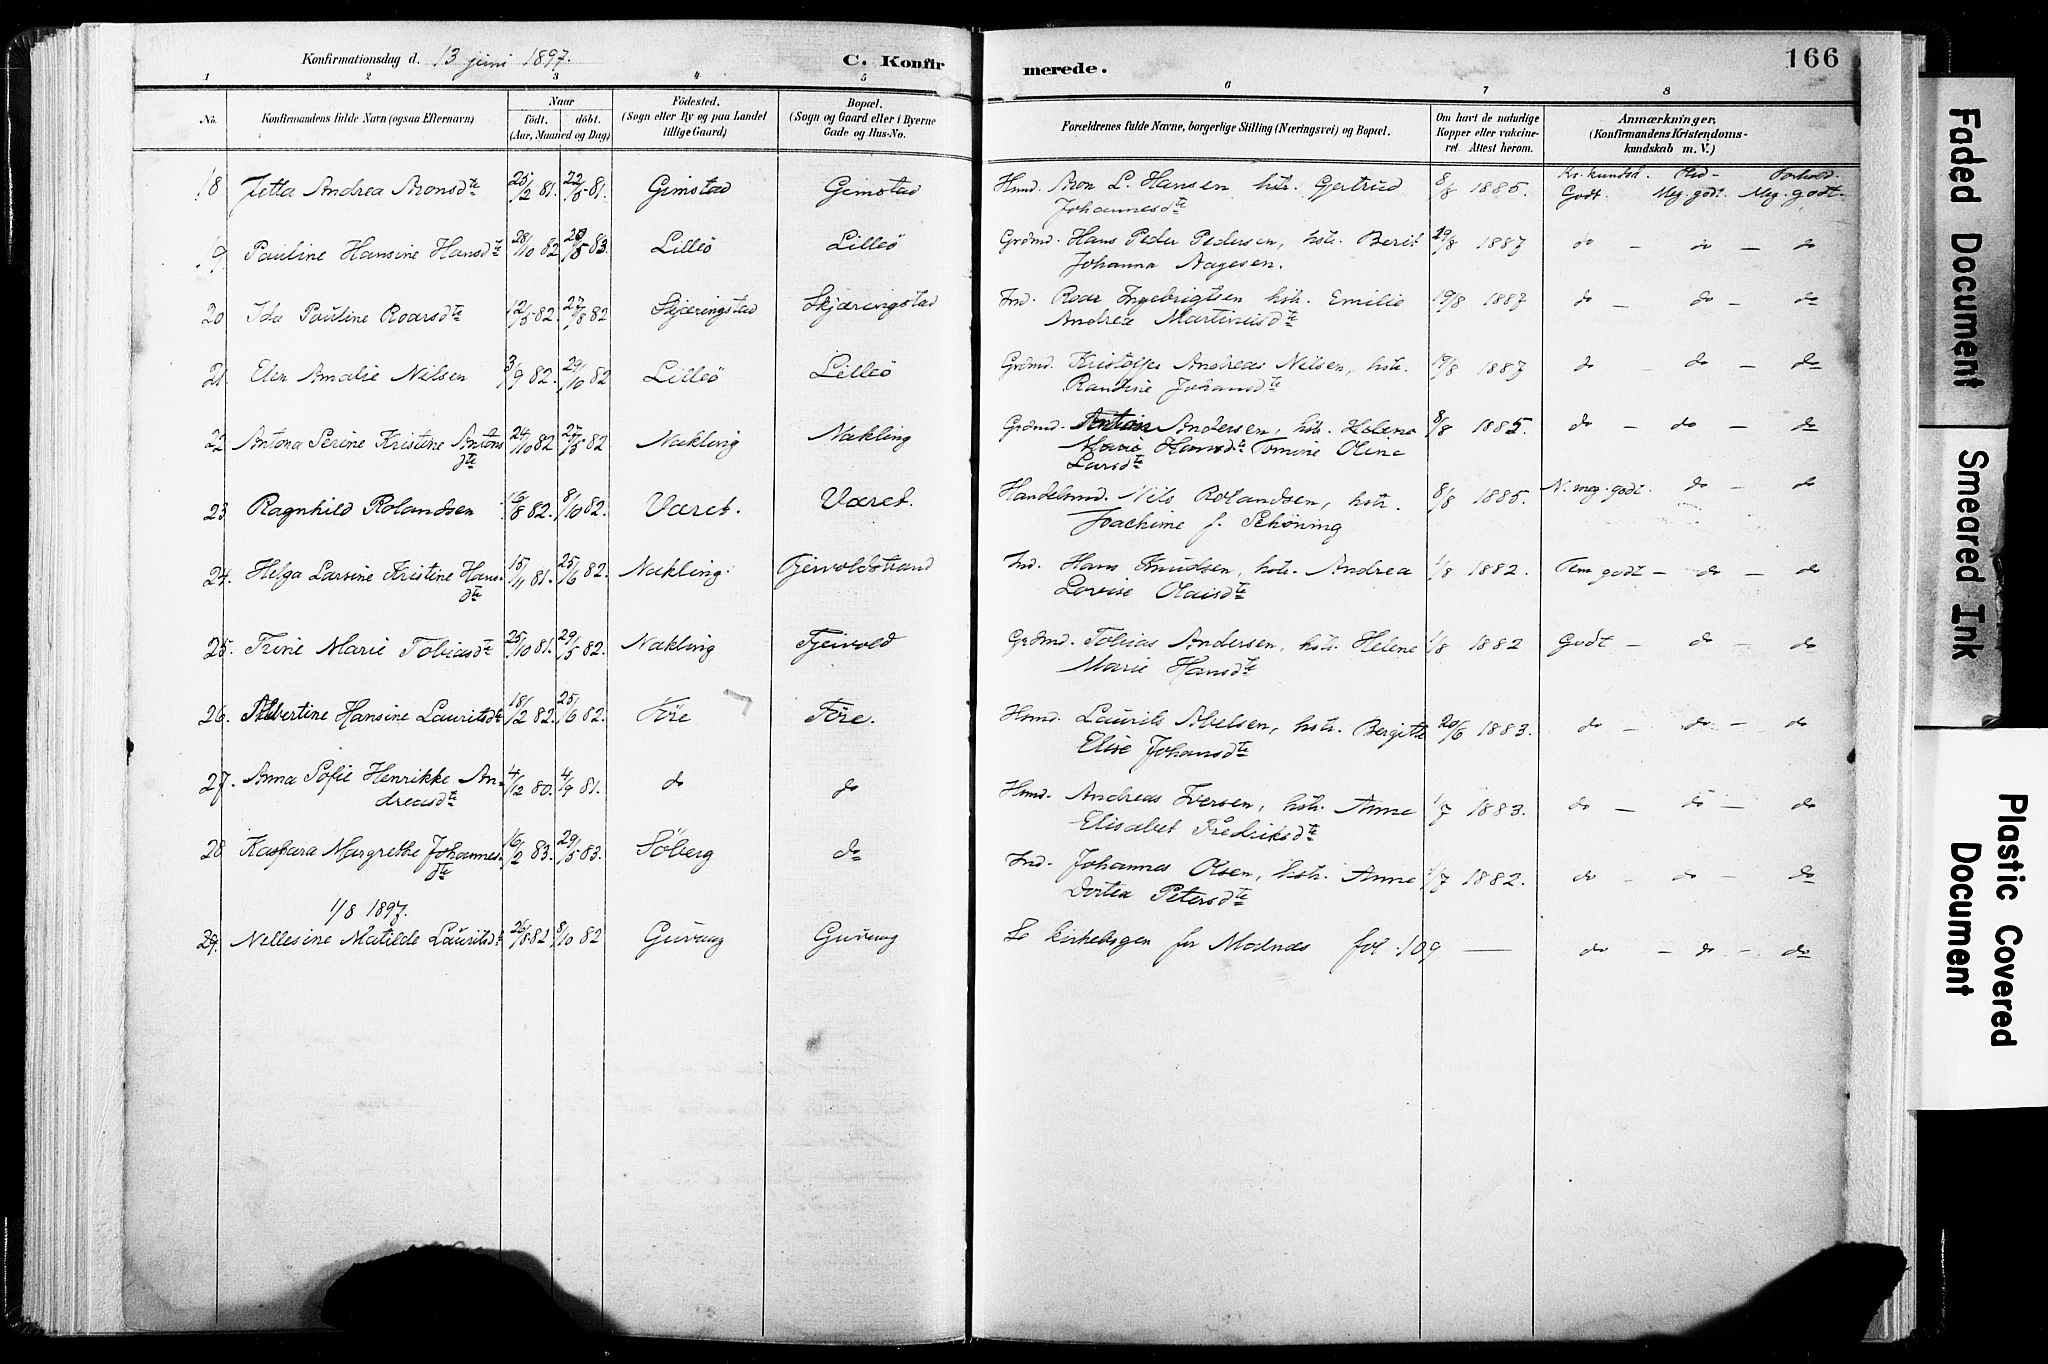 Konfirmationsdag d. 13 juni 1897. C. Konfirmerede. 166
1 2 3 4 5 6 7 8
No. Konfirmandens fulde Navn (ogsaa Efternavn) Naar født. døbt. (Aar, Maaned og Dag) Fødested. (Sogn eller By og paa Landet tillige Gaard) Bopæl. (Sogn og Gaard eller i Byerne Gade og Hus-No. Forældrenes fulde Navne, borgerlige Stilling (Næringsvei) og Bopæl. Om havt de naturlige Kopper eller vakcineret. Attest herom. Anmærkninger. (Konfirmandens Kristendomskundskab m. V.)
18 Jetta Andrea Aronsdte 25/2 81. 22/5 81. Gimstad Gimstad Hmd. Aron L. Hansen hstr. Gjertrud 8/8 1885. Kr. kundsk. Flid - Forhold.
Johannesdte Godt. Meg godt. Meg. godt.
19 Pauline Hansine Hansdte 28/10 82 Lilleö Lilleö Grdmd. Hans Peder Pedersen, hstr. Berit 29/8 1887 do - do - do
Johanna Aagesen.
20 Ida Pauline Roarsdte 12/5 82. 27/8 82 Skjæringstad Skjæringstad Ind. Roar Ingebrigtsen hstr. Emilie 19/8 1887 do - do - do
Andrea Martinusdte
21 Elen Amalie Nilsen 3/9 82. 29/10 82 Lilleö Lilleö Grdmd. Kristoffer Andreas Nilsen, hstr. 19/8 1887 do - do - do
Randine Johansdte
22 Antona Serine Kristine Antons 24/10 82 27/5 82 Nakling Nakling Grdmd. Anton Andersen, hstr. Helene 8/8 1885. do - do - do
dte Marie Hansdte Tomine Oline
Larsdte
23 Ragnhild Rolandsen 16/8 82. 8/10 82. Været. Været. Handelsmd. Nils Rolandsen, hstr. 8/8 1885. N. meg. godt. do - do
Joachime f. Schöning
24. Helga Larsine Kristine Hans- 15/11 81. 25/6 82. Nakling. Fjervoldstrand Ind. Hans Knudsen, hstr. Andrea 1/8 1882. Tem godt - do - do
dte Lovise Olaisdte
25. Trine Marie Tobiasdte 25/10 81. 29/5 82. Nakling Fjeivold Grdmd. Tobias Andersen, hstr. Helene 1/8 1882 Godt - do - do
Marie Hansdte
26. Albertine Hansine Lauritsdte 18/2 82. 25/6 82. Före Före. Hmd. Laurits Abelsen, hstr. Bergitte 20/6 1883. do - do - do
Elise Johansdte
27. Anna Sofie Henrikke An- 4/12 80. 4/9 81. do do Hmd. Andreas Iversen, hstr. Anne 1/7 1883. do - do - do
dreasdte Elisabet Fredriksdte
28 Kaspara Margrethe Johannes- 16/2 83. 29/5 83. Söberg do Ind. Johannes Olsen, hstr. Anne 1/7 1882. do - do - do
dte Dortea Petersdte
1/8 1897.
29. Nellesine Matilde Lauritsdt 26/8 82 8/10 82 Guvaag Guvaag Se kirkebogen for Malnes fol. 109 — do - do - do
Faded Document
Smeared Ink
Plastic Covered
Document